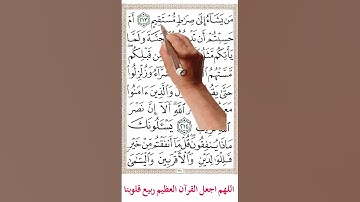 مَن يَشَآءُ إِلَىٰ صِرَٰطٍ مُّسْتَقِيمٍ ٢١٣ أَمْ
حَسِبْتُمْ أَن وَلَمَّا
يَأْتِكُم مِن قَبْلِكُم
مَّسَّتْهُمُ وَزُلْزِلُوا۟
حَتَّىٰ وَٱلَّذِينَ ءَامَنُوا۟
ٱللَّهِ أَلَآ إِنَّ نَصْرَ
٢١٤ يَسْـَٔلُونَكَ
مَاذَا يُنفِقُونَ قُلْ مَآ أَنفَقْتُم مِّنْ خَيْرٍ
فَلِلْوَٰلِدَيْنِ وَٱلْأَقْرَبِينَ وَٱلْيَتَٰمَىٰ
اللهم اجعل القرآن العظيم ربيع قلوبنا